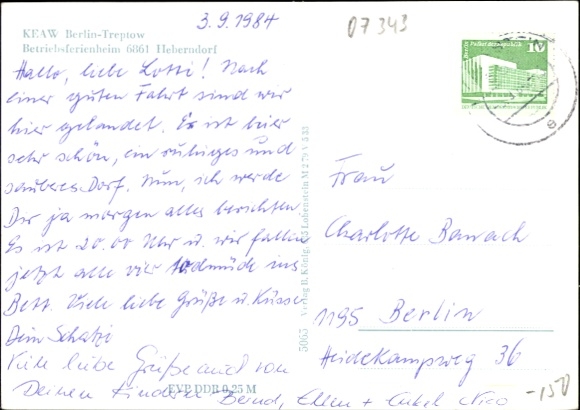 3.9.1984
07 343
KEAW Berlin-Treptow
Betriebsferienheim 6861 Heberndorf
Hallo, liebe Lotti! Nach
einer guten Fahrt sind wir
hier gelandet. Es ist hier
sehr schön, ein ruhiges und
sauberes Dorf. Nun, ich werde
Dir ja morgen alles berichten
Es ist 20.00 Uhr u. wir fallen
jetzt alle vier todmüde ins
Bett. Viele liebe Grüße u. Küsse
Dein Schatzi
Viele liebe Grüße auch von
Deinen Kindern Bernd, Ellen + Enkel Nico
EVP DDR 0,25 M
5065 Verlag B. König, Lobenstein M 279 V 533
Berlin Palast der Republik
10
Frau
Charlotte Banach
1195 Berlin
Heidekampweg 36
-150